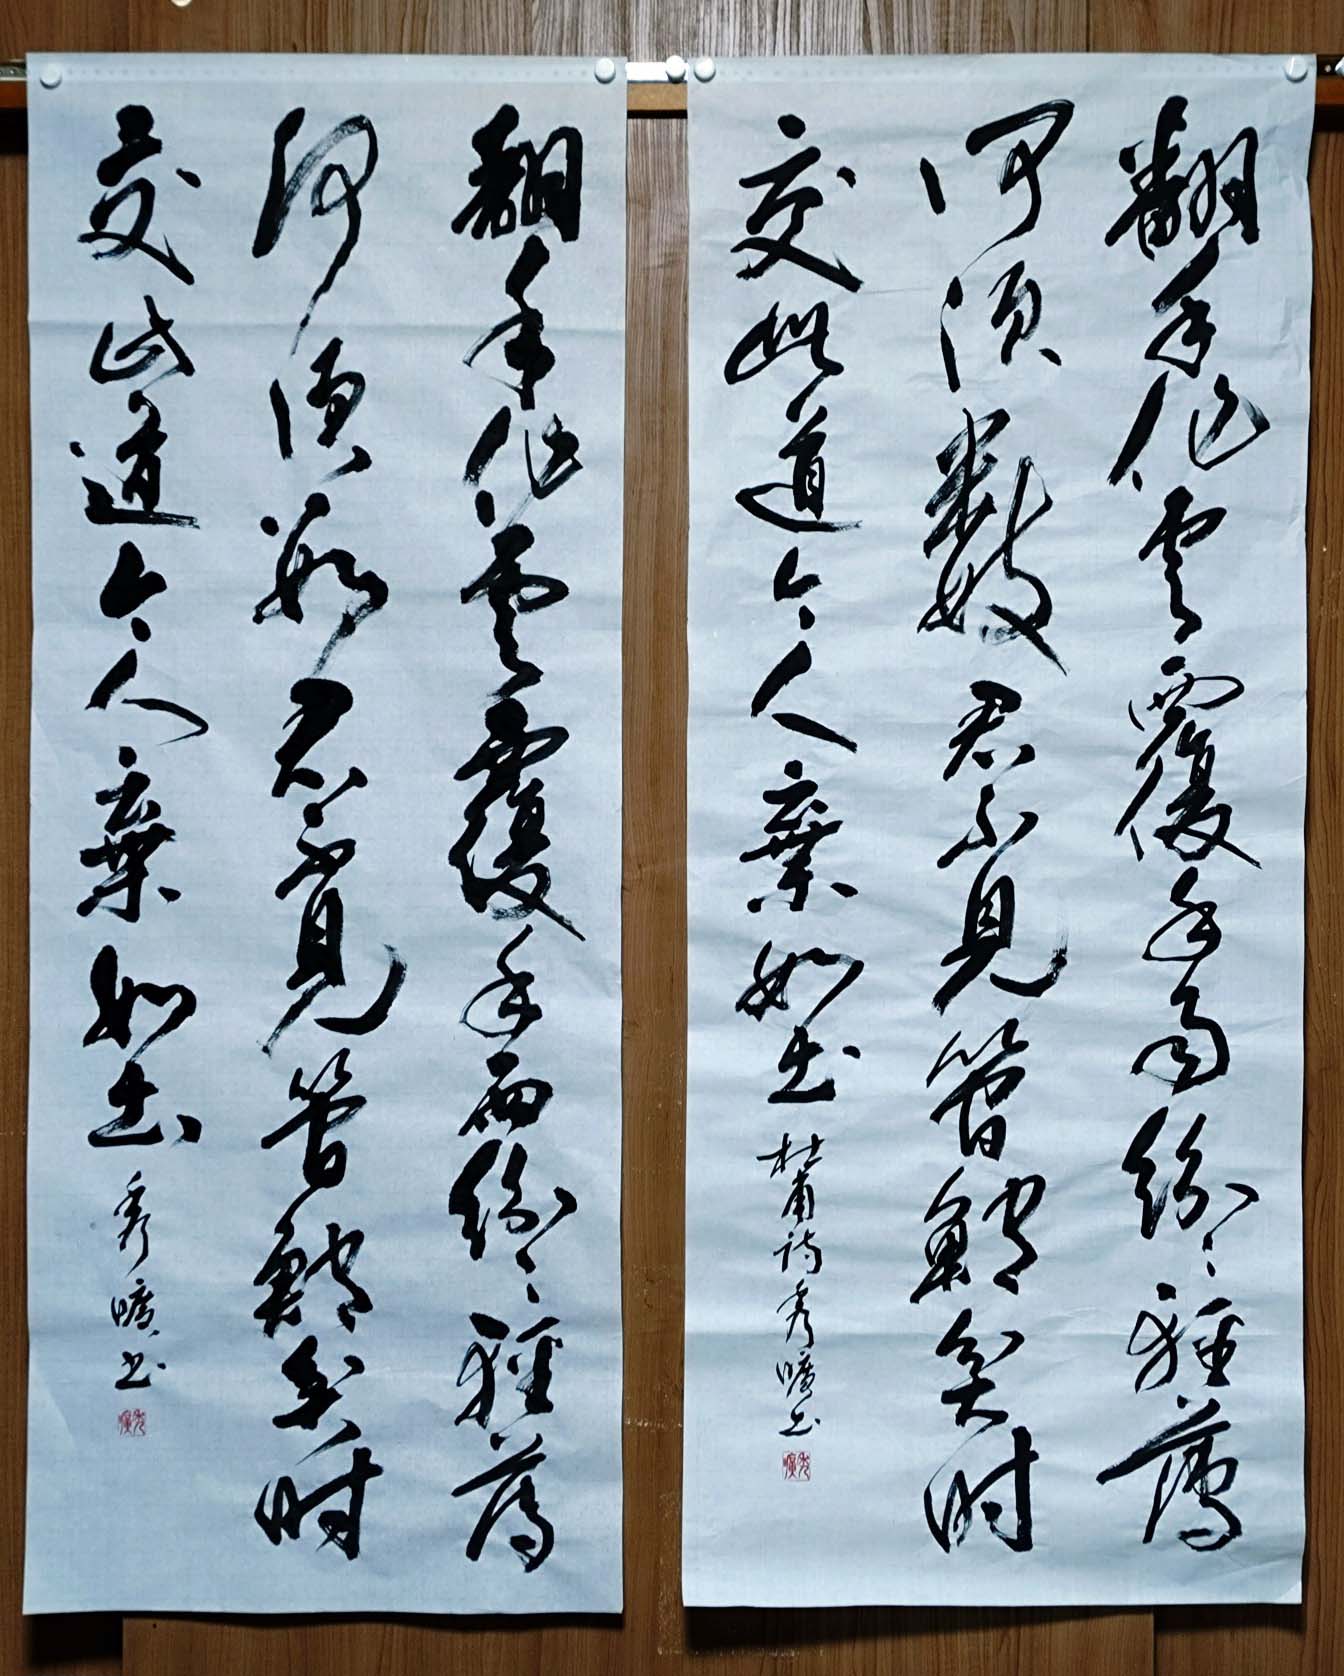 翻手作雲覆手雨紛々輕薄
何須數君不見管鮑貧時
交此道今人棄如土 杜甫詩 秀曠書
翻手作雲覆手雨紛々輕薄
何須數君不見管鮑貧時
交此道今人棄如土 秀曠書